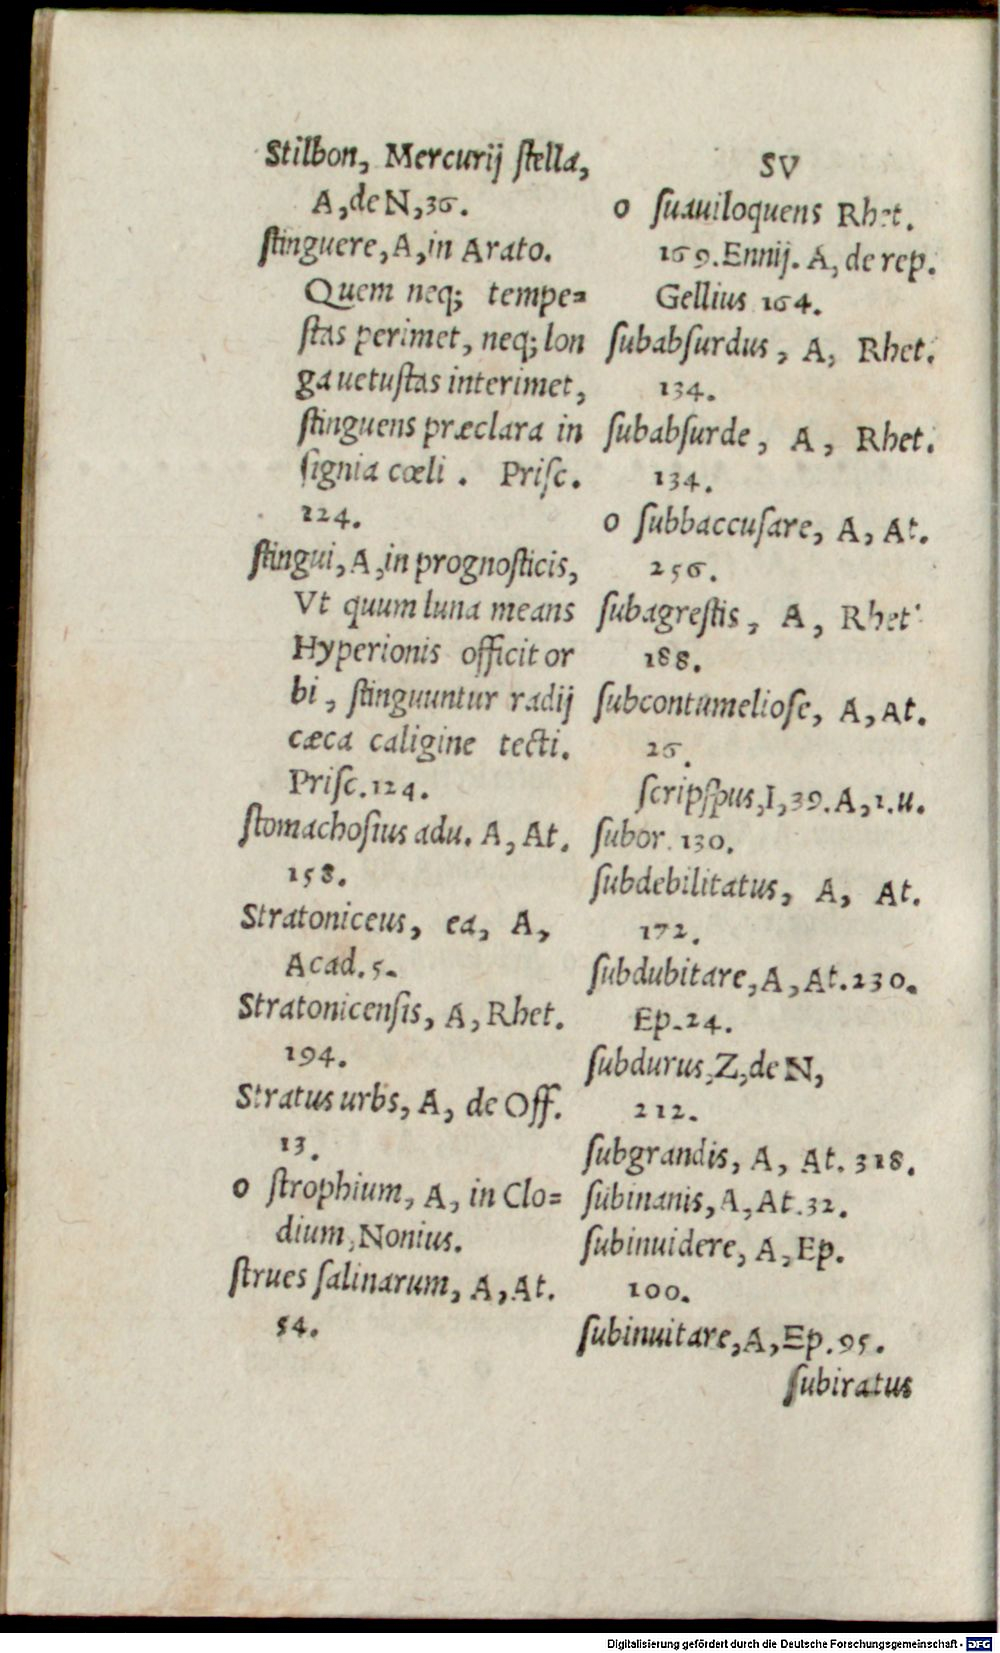 Stilbon, Mercurij ſtella,
A, de N, 36.
ſtinguere, A, in Arato.
Quem neq; tempe=
ſtas perimet, neq; lon
ga uetuſtas interimet,
ſtinguens præclara in
ſignia cœli . Priſc.
124.
ſtingui, A, in prognoſticis,
Vt quum luna means
Hyperionis officit or
bi, ſtinguuntur radij
cæca caligine tecti.
Priſc. 124.
ſtomachoſius adu. A, At.
158.
Stratoniceus, ea, A,
Acad. 5.
Stratonicenſis, A, Rhet.
194.
Stratus urbs, A, de Off.
13.
o ſtrophium, A, in Clo=
dium, Nonius.
ſtrues ſalinarum, A, At.
54.
SV
o ſuauiloquens Rhet.
169. Ennij. A, de rep.
Gellius 164.
ſubabſurdus, A, Rhet.
134.
ſubabſurde, A, Rhet.
134.
o ſubbaccuſare, A, At.
256.
ſubagreſtis, A, Rhet
188.
ſubcontumelioſe, A, At.
26.
ſcripſpus, I, 39. A, 1. u.
ſubor. 130.
ſubdebilitatus, A, At.
172.
ſubdubitare, A, At. 230.
Ep. 24.
ſubdurus, Z, de N,
212.
ſubgrandis, A, At. 318.
ſubinanis, A, At. 32.
ſubinuidere, A, Ep.
100.
ſubinuitare, A, Ep. 95.
ſubiratus
Digitalisierung gefördert durch die Deutsche Forschungsgemeinschaft - DFG